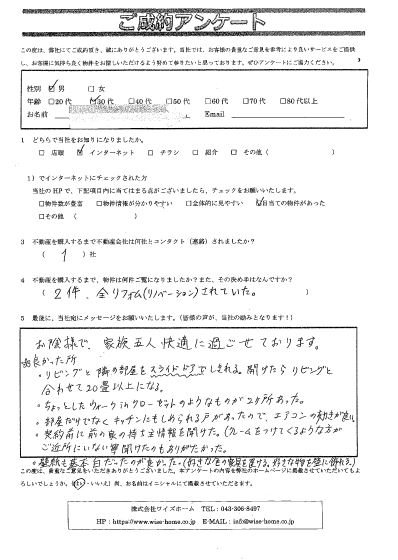 ご成約アンケート
この度は、弊社にてご成約頂き、誠にありがとうございます。当社では、お客様の貴重なご意見を参考により良いサービスをご提供
し、お客様に気持ち良く物件をお探しいただけるよう努めて参りたいと思っております。ぜひアンケートにご協力ください。
性別 ☑男 □女
年齢 □20代 ☑30代 □40代 □50代 □60代 □70代 □80代以上
お名前 Email
1 どちらで当社をお知りになりましたか。
□ 店頭 ☑ インターネット □ チラシ □ 紹介 □ その他( )
1)でインターネットにチェックされた方
当社のHPで、下記項目内に当てはまる点がございましたら、チェックをお願いいたします。
□物件数が豊富 □物件情報が分かりやすい □全体的に見やすい ☑目当ての物件があった
□その他( )
3 不動産を購入するまで不動産会社は何社とコンタクト(連絡)されましたか?
( 1 )社
4 不動産を購入するまで、物件は何件ご覧になりましたか?また、その決め手はなんですか?
( 2件、全リフォーム(リノベーション)されていた。 )
5 最後に、当社宛にメッセージをお願いいたします。(皆様の声が、当社の励みとなります!!)
お陰様で、家族五人快適に過ごせております。
良かった所
・リビングと隣の部屋をスライドドアでしきれる。開けたらリビングと
合わせて20畳以上になる。
・ちょっとしたウォークインクローゼットのようなものが2ヶ所あった。
・部屋だけでなくキッチンにもしめられる戸があったので、エアコンの効きが良い
・契約前に前の家の持ち主情報を聞けた。(クレームをつけてくるような方が
ご近所にいない等聞けたのもありがたかった。
・壁紙も基本白だったのが良かった。(好きな色の家具を置ける。好きな物を壁に飾れる。)
この度は、貴重なご意見をいただきありがとうございました。本アンケートの内容を弊社のホームページに掲載させていただいてもよ
ろしいでしょうか。(はい・いいえ)尚、お名前はイニシャルにて掲載させていただきます。
株式会社ワイズホーム TEL:043-305-8497
HP:https://www.wise-home.co.jp E-MAIL:info@wise-home.co.jp